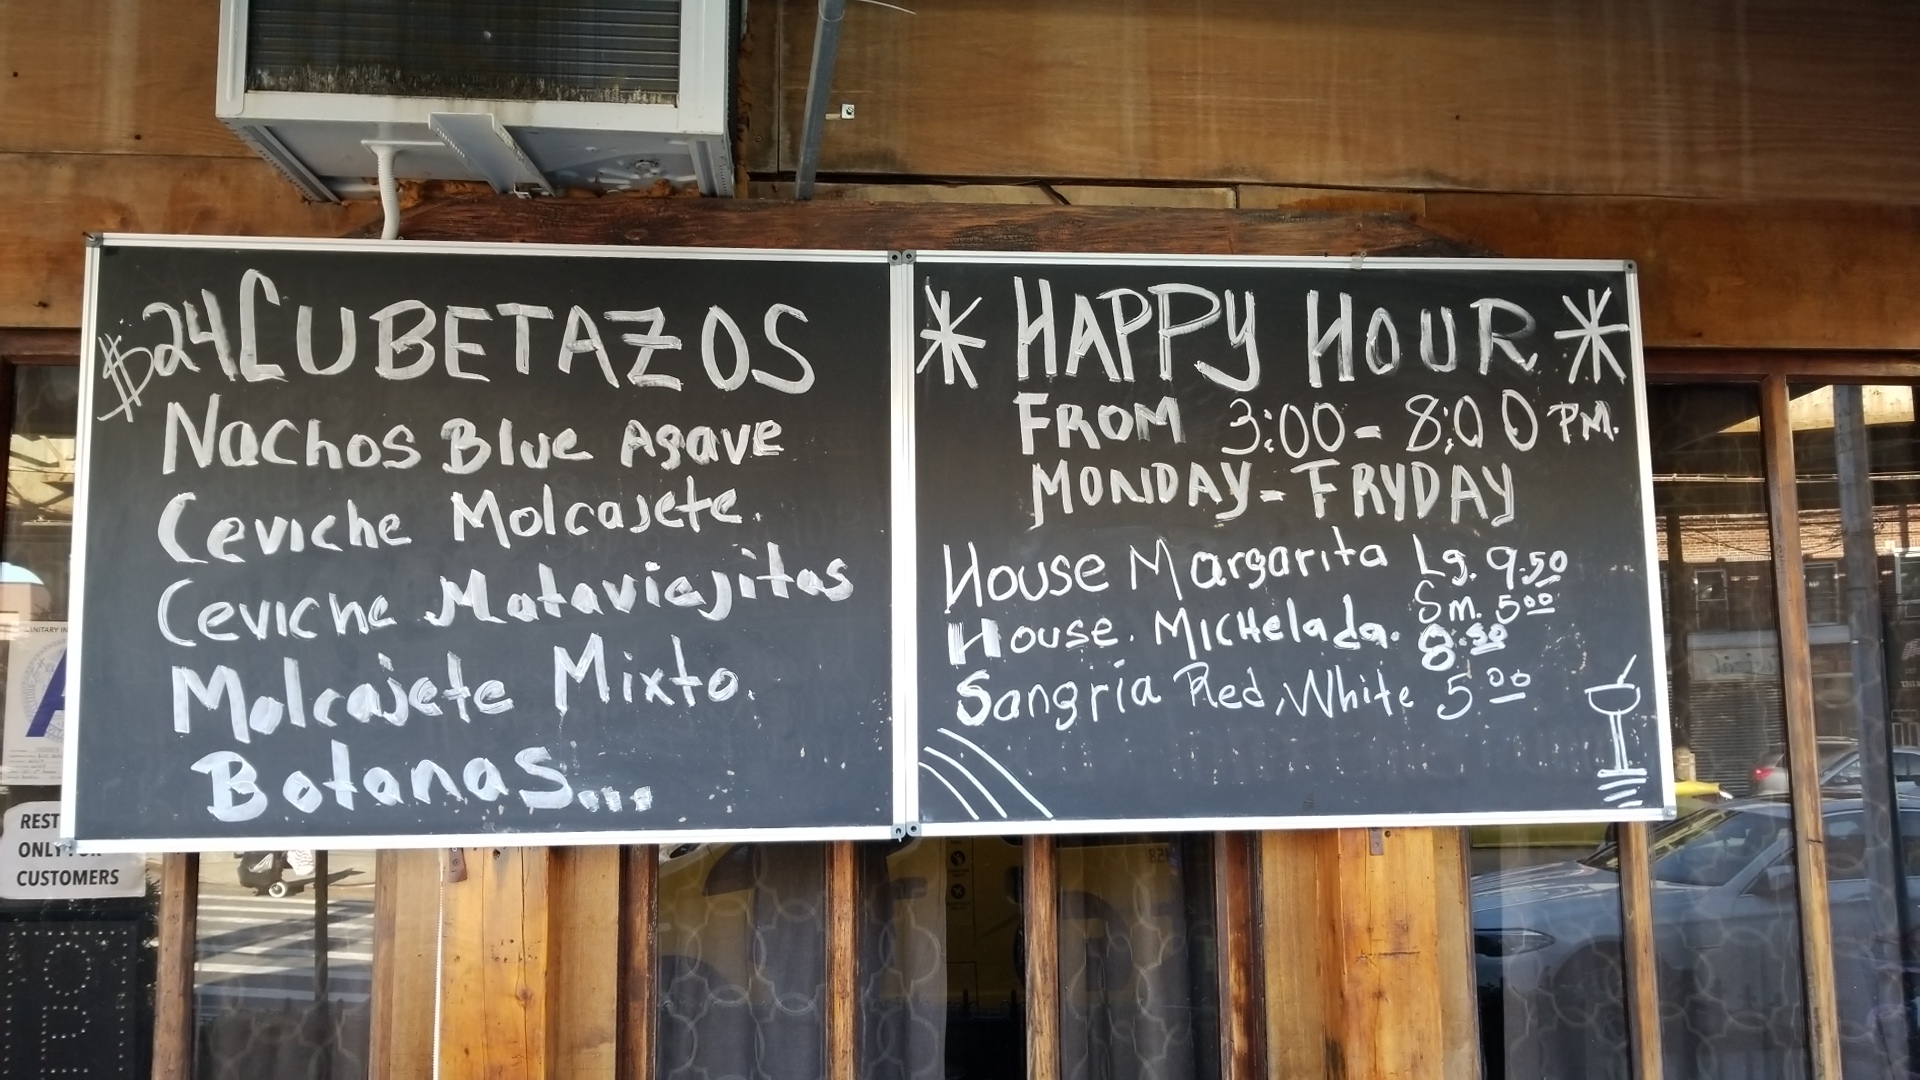 $24 CUBETAZOS
Nachos Blue Agave
Ceviche Molcajete.
Ceviche Mataviejitas
Molcajete Mixto.
Botanas...
* HAPPY HOUR *
FROM 3:00 - 8:00 PM.
MONDAY - FRYDAY
House Margarita Lg. 9.50
Sm. 5 00
House. MICHelada. 8.50
Sangria Red, White 5 00
SANITARY IN
A
REST
ONLY FOR
CUSTOMERS